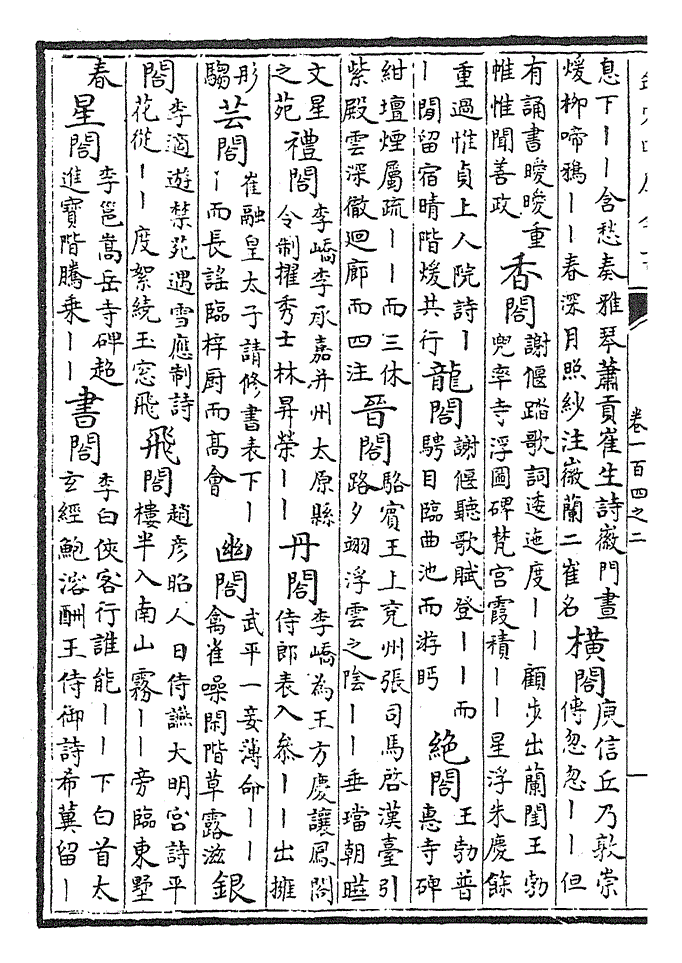 卷一百四之二
一
息下丨丨含愁奏雅琴蕭貢崔生詩薇門晝煖柳啼鴉丨丨春深月照紗注薇蘭二崔名橫閣庾信丘乃敦崇傳忽忽丨丨但
有誦書曖曖重帷惟聞善政香閣謝偃踏歌詞逶迤度丨丨顧步出蘭閨王勃兜率寺浮圖碑梵宮霞積丨丨星浮朱慶餘
重過惟貞上人院詩丨丨閒留宿晴階煖共行龍閣謝偃聽歌賦登丨丨而騁目臨曲池而游眄絶閣王勃普惠寺碑
紺壇煙屬疏丨丨而三休紫殿雲深徹迴廊而四注晉閣駱賓王上兖州張司馬啓漢臺引路夕翊浮雲之陰丨丨垂璫朝曀
文星之苑禮閣李嶠李永嘉并州太原縣令制擢秀士林昇榮丨丨丹閣李嶠為王方慶讓鳳閣侍郎表入叅丨丨出擁
彤騶芸閣崔融皇太子請修書表下丨丨而長謡臨梓厨而髙會幽閣武平一妾薄命丨丨禽雀噪閑階草露滋銀
閣李適遊禁苑遇雪應制詩花從丨丨度絮繞玉窓飛飛閣趙彦昭人日侍讌大明宫詩平樓半入南山霧丨丨旁臨東墅
春星閣李邕嵩岳寺碑超進寶階騰乘丨丨書閣李白俠客行誰能丨丨下白首太玄經鮑溶酬王侍御詩希冀留丨